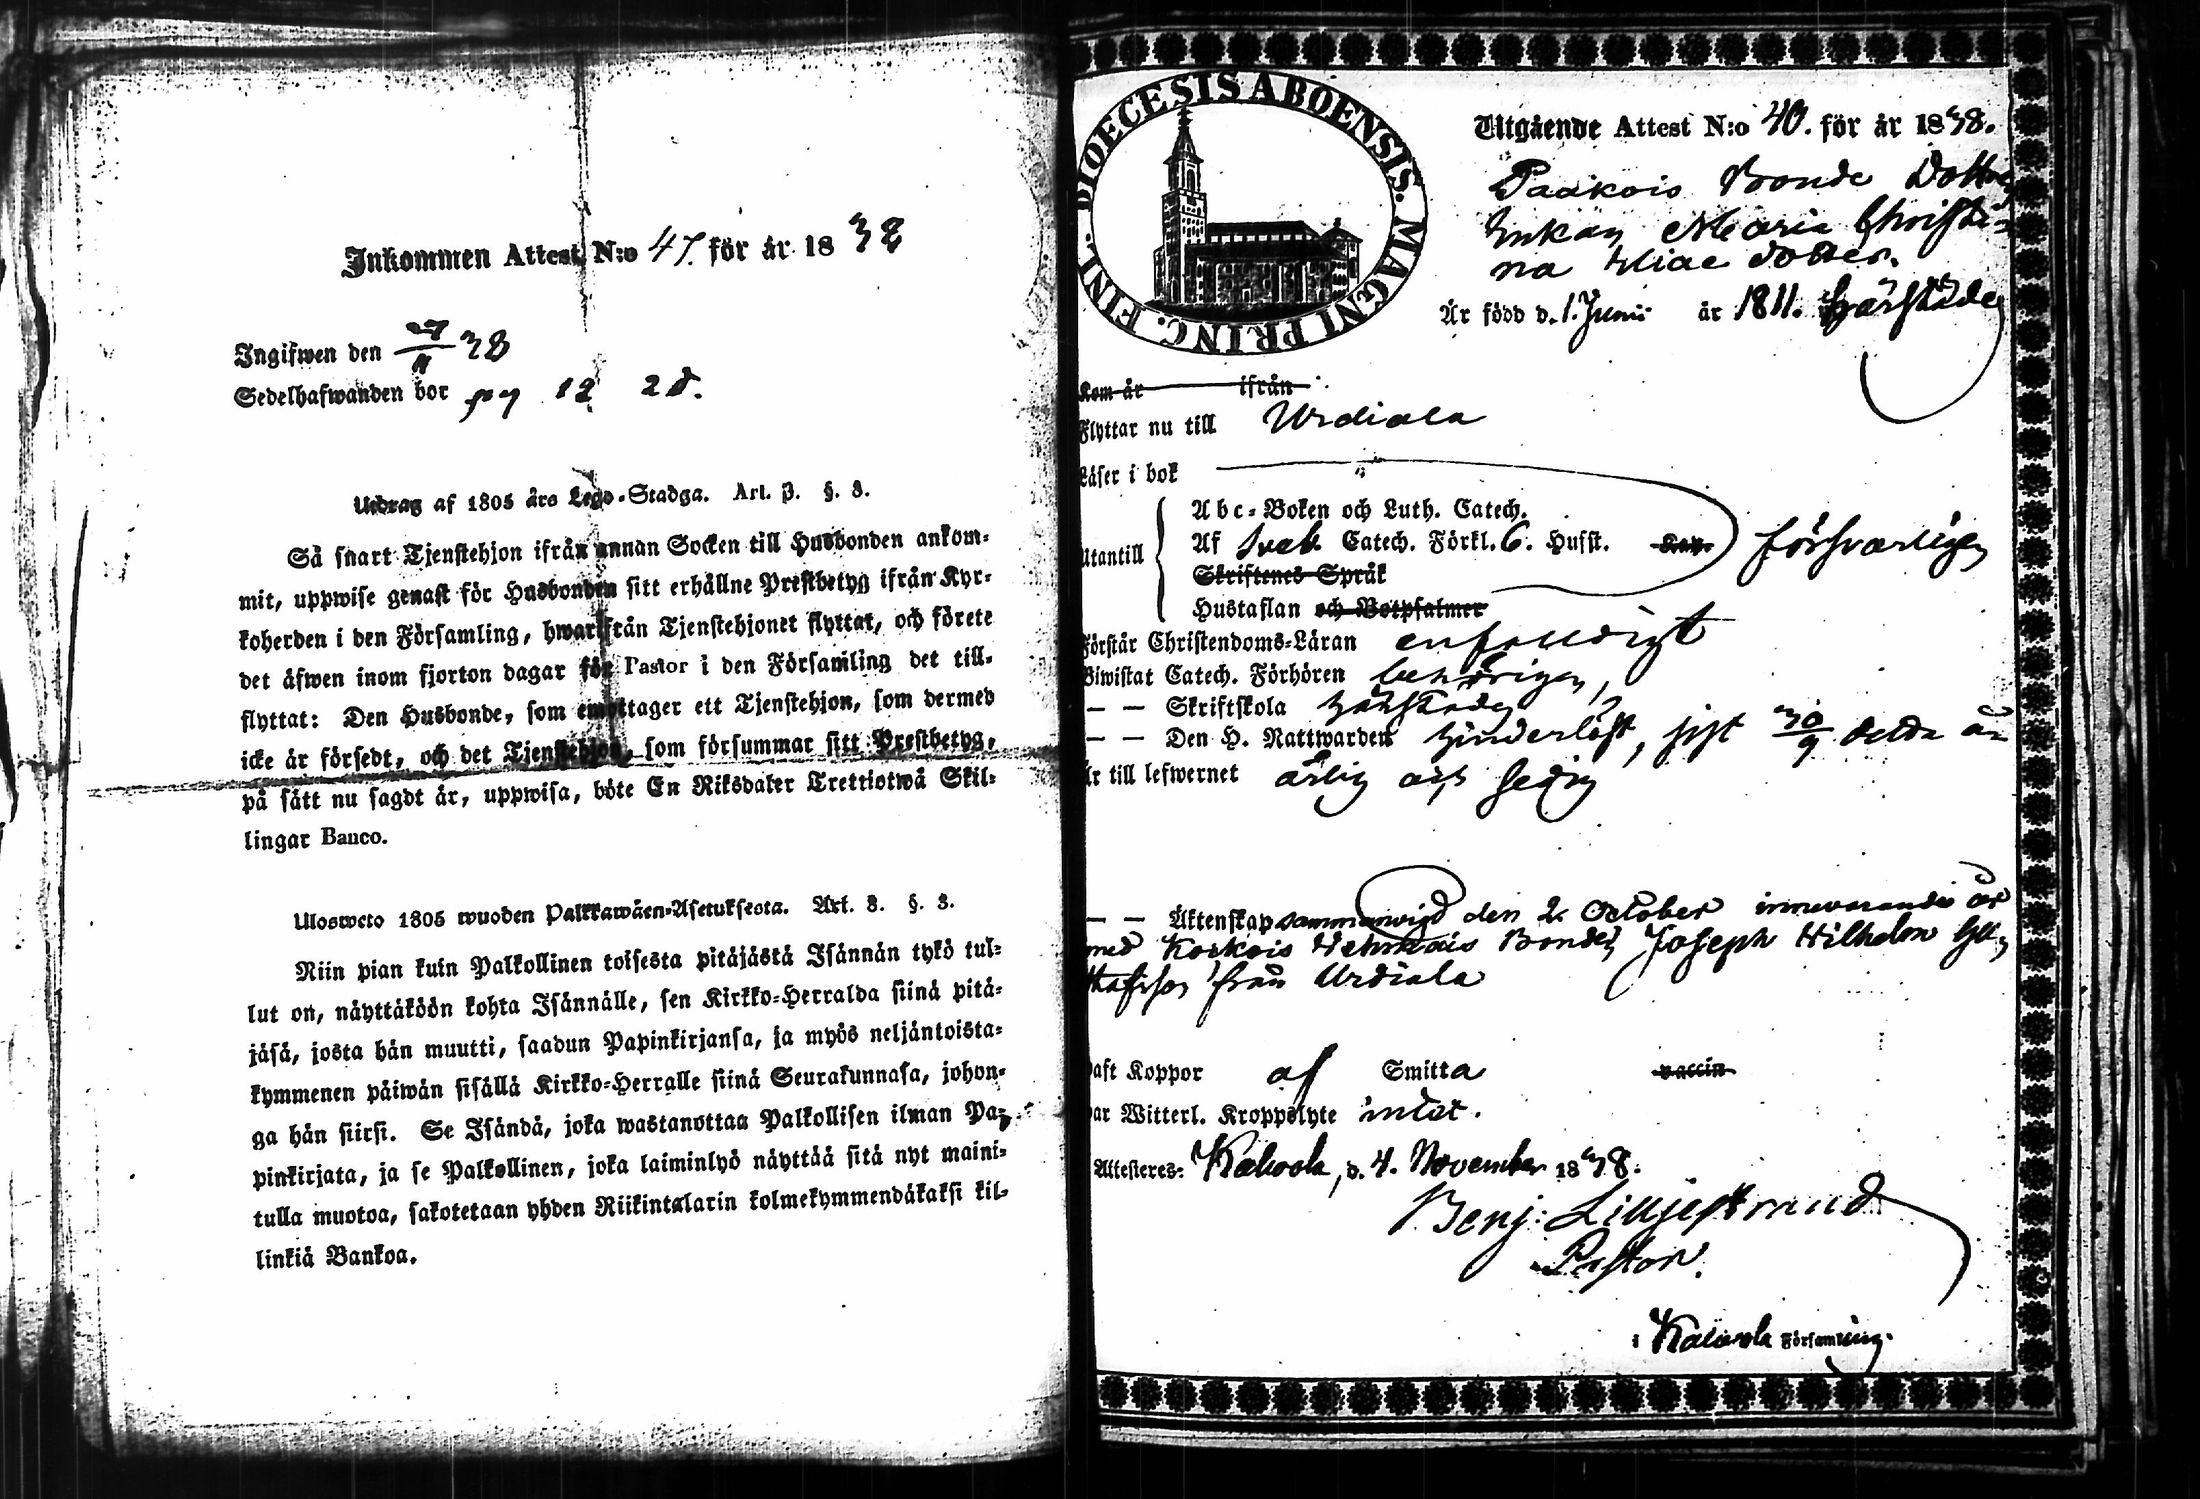 Inkommen Attest N:o 47. för år 1838
Ingifwen den 27/11 38
Sedelhafwanden bor pag 12 20.
Utdrag af 1805 års Lego-Stadga. Art. 3. §. 3.
Så snart Tjenstehjon ifrån annan Socken till Husbonden ankom-
mit, uppwise genast för Husbonden sitt erhållne Prestbetyg ifrån Kyr-
koherden i den Församling, hwarifrån Tjenstehjonet flyttat, och förete
det äfwen inom fjorton dagar för Pastor i den Församling det till-
flyttat: Den Husbonde, som emottager ett Tjenstehjon, som dermed
icke är försedt, och det Tjenstehjon, som försummar sitt Prestbetyg,
på sätt nu sagdt är, uppwisa, böte En Riksdaler Trettiotwå Skil-
lingar Banco.
Ulosweto 1805 wuoden Palkkawäen-Asetuksesta. Art. 3. §. 3.
Niin pian kuin Palkollinen toisesta pitäjästä Isännän tykö tul-
lut on, näyttäköön kohta Isännälle, sen Kirkko-Herralda siinä pitä-
jäsä, josta hän muutti, saadun Papinkirjansa, ja myös neljäntoista-
kymmenen päiwän sisällä Kirkko-Herralle siinä Seurakunnasa, johon-
ga hän siirsi. Se Isändä, joka wastanottaa Palkollisen ilman Pa-
pinkirjata, ja se Palkollinen, joka laiminlyö näyttää sitä nyt maini-
tulla muotoa, sakotetaan yhden Riikintalarin kolmekymmendäkaksi kil-
linkiä Bankoa.
DIOECESIS ABOENSIS. MAGNI PRINC. FINL.
Utgående Attest N:o 40. för år 1838.
Paakois Bonde Dotter
Enkan Maria Christi-
na Eliae dotter.
Är född d. 1. Junii år 1811. härstädes
Kom år ifrån
Flyttar nu till Urdiala
Läser i bok
Abc-Boken och Luth. Catech.
Utantill Af Sveb. Catech. Förkl. 6. Hufst. försvarligen
Skriftenes Språk
Hustaflan och Botpsalmer
Förstår Christendoms-Läran enfaldigt
Biwistat Catech. Förhören behörigen,
— — Skriftskola härstädes
— — Den H. Nattwarden hinderlöst, sist 30/9 detta år
Är till lefwernet ärlig och sedig
— — Äktenskap sammanvigd den 2. October innevarande år
med Korkois Bonden Joseph Wilhelm Gu-
stafsson från Urdiala
Haft Koppor af Smitta vaccin
Har Witterl. Kroppslyte intet.
Attesteres: Kalvola, d. 4. November 1838.
Benj: Lilljestrand
Pastor.
i Kalvola Församling.